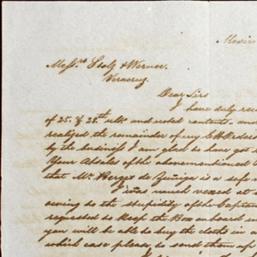 Mexico
Mess.rs Stolz & Werner.
Veracruz
Dear Sirs
I have duly
of 25. & 28th ulto and noted contents, and
realized the remainder of my
by the business I am glad to have got
Your of the abovementioned
that Mr. Berger de Zuñiga is a safe
I was much vexed at
owing to the stupidity of the Captain
requested to keep the Box on board
you will be able to buy the cloth in
which case please to send them off